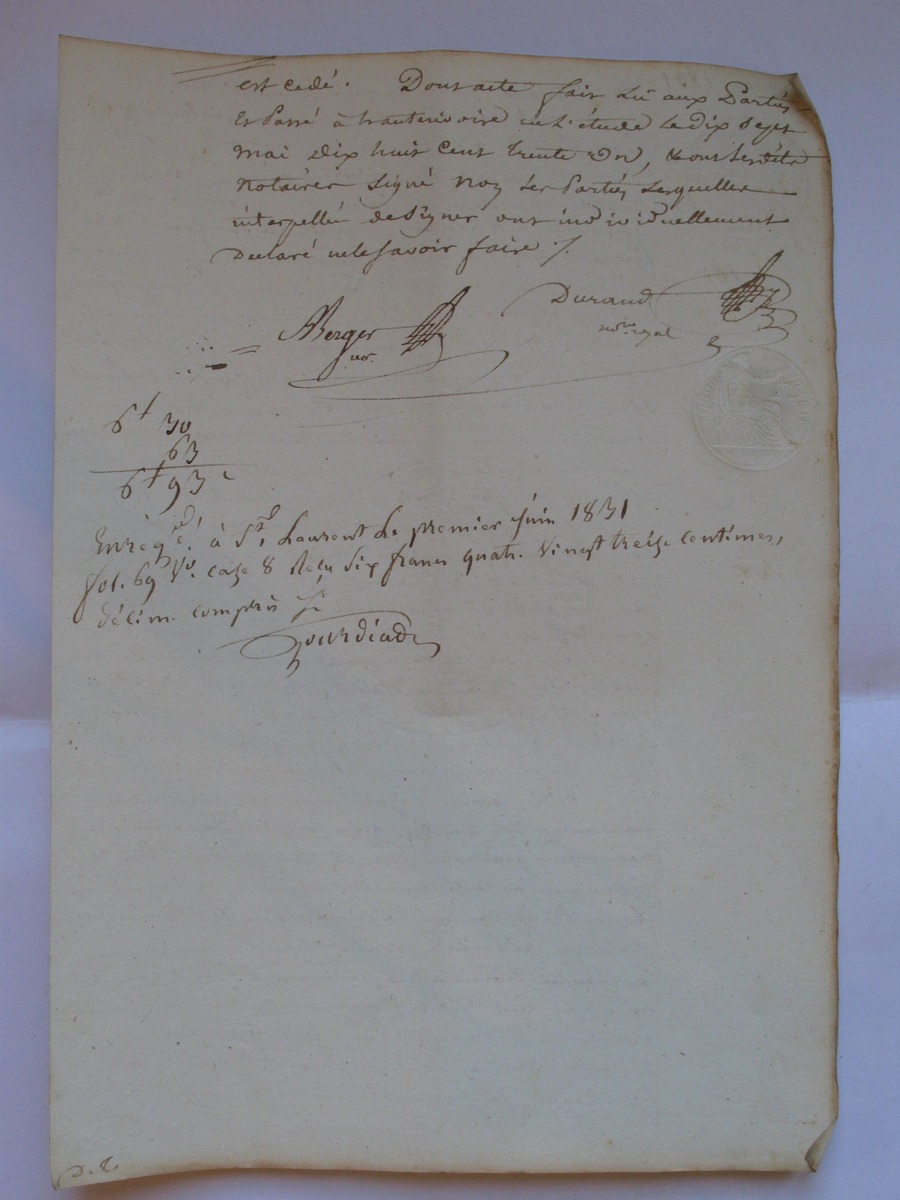 est cedé. Dont acte fait Lû aux Parties
Et Passé à hauterivoire en L'étude Le dix Sept
mai dix huit Cent trente Un, & ont Lesdits
Notaires Signé Non Les Parties Lesquelles
interpellées de Signer ont individuellement
Declaré ne le Savoir faire ./.
Durand
not.re royal
Berger
nor.
6f 30
63
6f 93c
Enregé. à St. Laurent Le premier Juin 1831
fol. 69 Vo. case 8 Reçu Six francs quatr. Vingt treize Centimes,
décim. compris